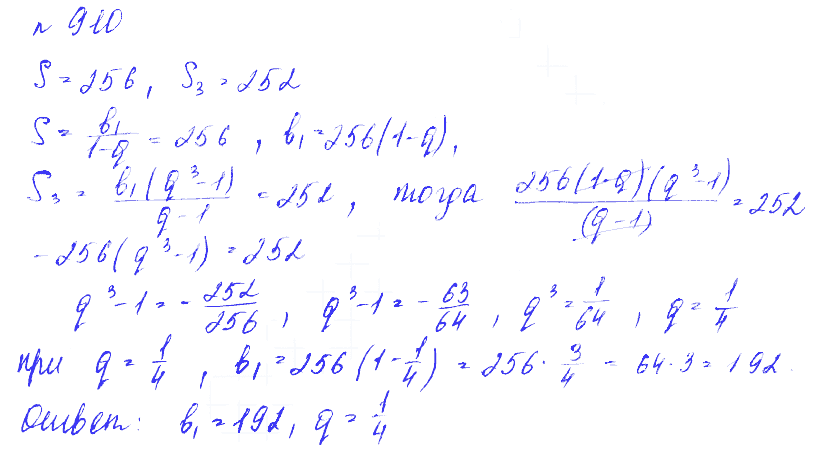 № 910
S = 256, S₃ = 252
S = b₁/(1-q) = 256, b₁ = 256(1-q),
S₃ = b₁(q³-1)/(q-1) = 252, тогда 256(1-q)(q³-1)/(q-1) = 252
-256(q³-1) = 252
q³-1 = -252/256, q³-1 = -63/64, q³ = 1/64, q = 1/4
при q = 1/4, b₁ = 256(1-1/4) = 256·3/4 = 64·3 = 192.
Ответ: b₁ = 192, q = 1/4